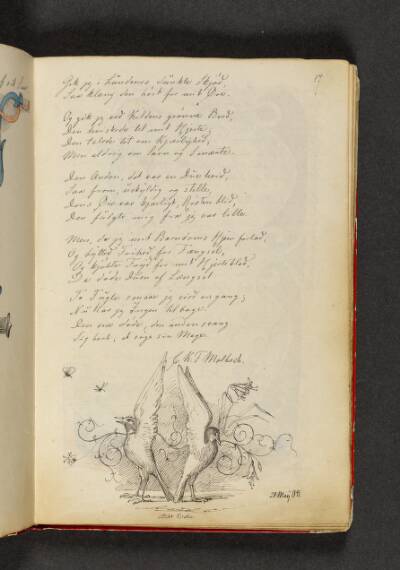 17
Gik jeg i Lundens dunkle Skjød,
Saa klang den høit for mit Øre.
Og gik jeg ved Kildens grønne Bred,
Den hviskede let mit Hjerte;
Den talede let om Kjærlighed,
Men aldrig om Savn og Smerte.
Den Anden, det var en Due hvid,
Saa from, uskyldig og stille,
Dens Øie var kjærligt, Røsten blid,
Den fulgte mig fra jeg var lille.
Men, da jeg mit Barndoms Hjem forlod,
Og bytted Frihed for Fængsel,
Og Fugl for mit Hjerteblod,
Da døde Duen af Længsel.
To Fugle jeg eied engang;
Nu har jeg Ingen tilbage.
Den ene døde, den anden sang
Sig bort, at søge sin Mage.
C. K. F. Molbech.
21 Maj